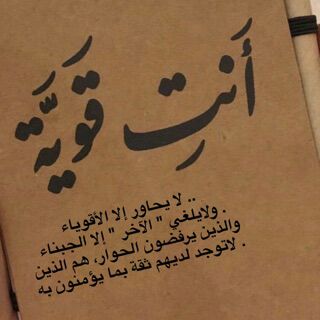 أَنتِ قَوِيَّة
.. لا يحاور إلا الأقوياء
. ولايلغي " الآخر " إلا الجبناء
والذين يرفضون الحوار، هم الذين
. لاتوجد لديهم ثقة بما يؤمنون به